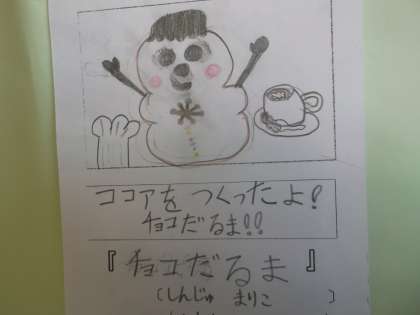 ココアをつくったよ!
チョコだるま!!
『チョコだるま』
(しんじゅ まりこ)